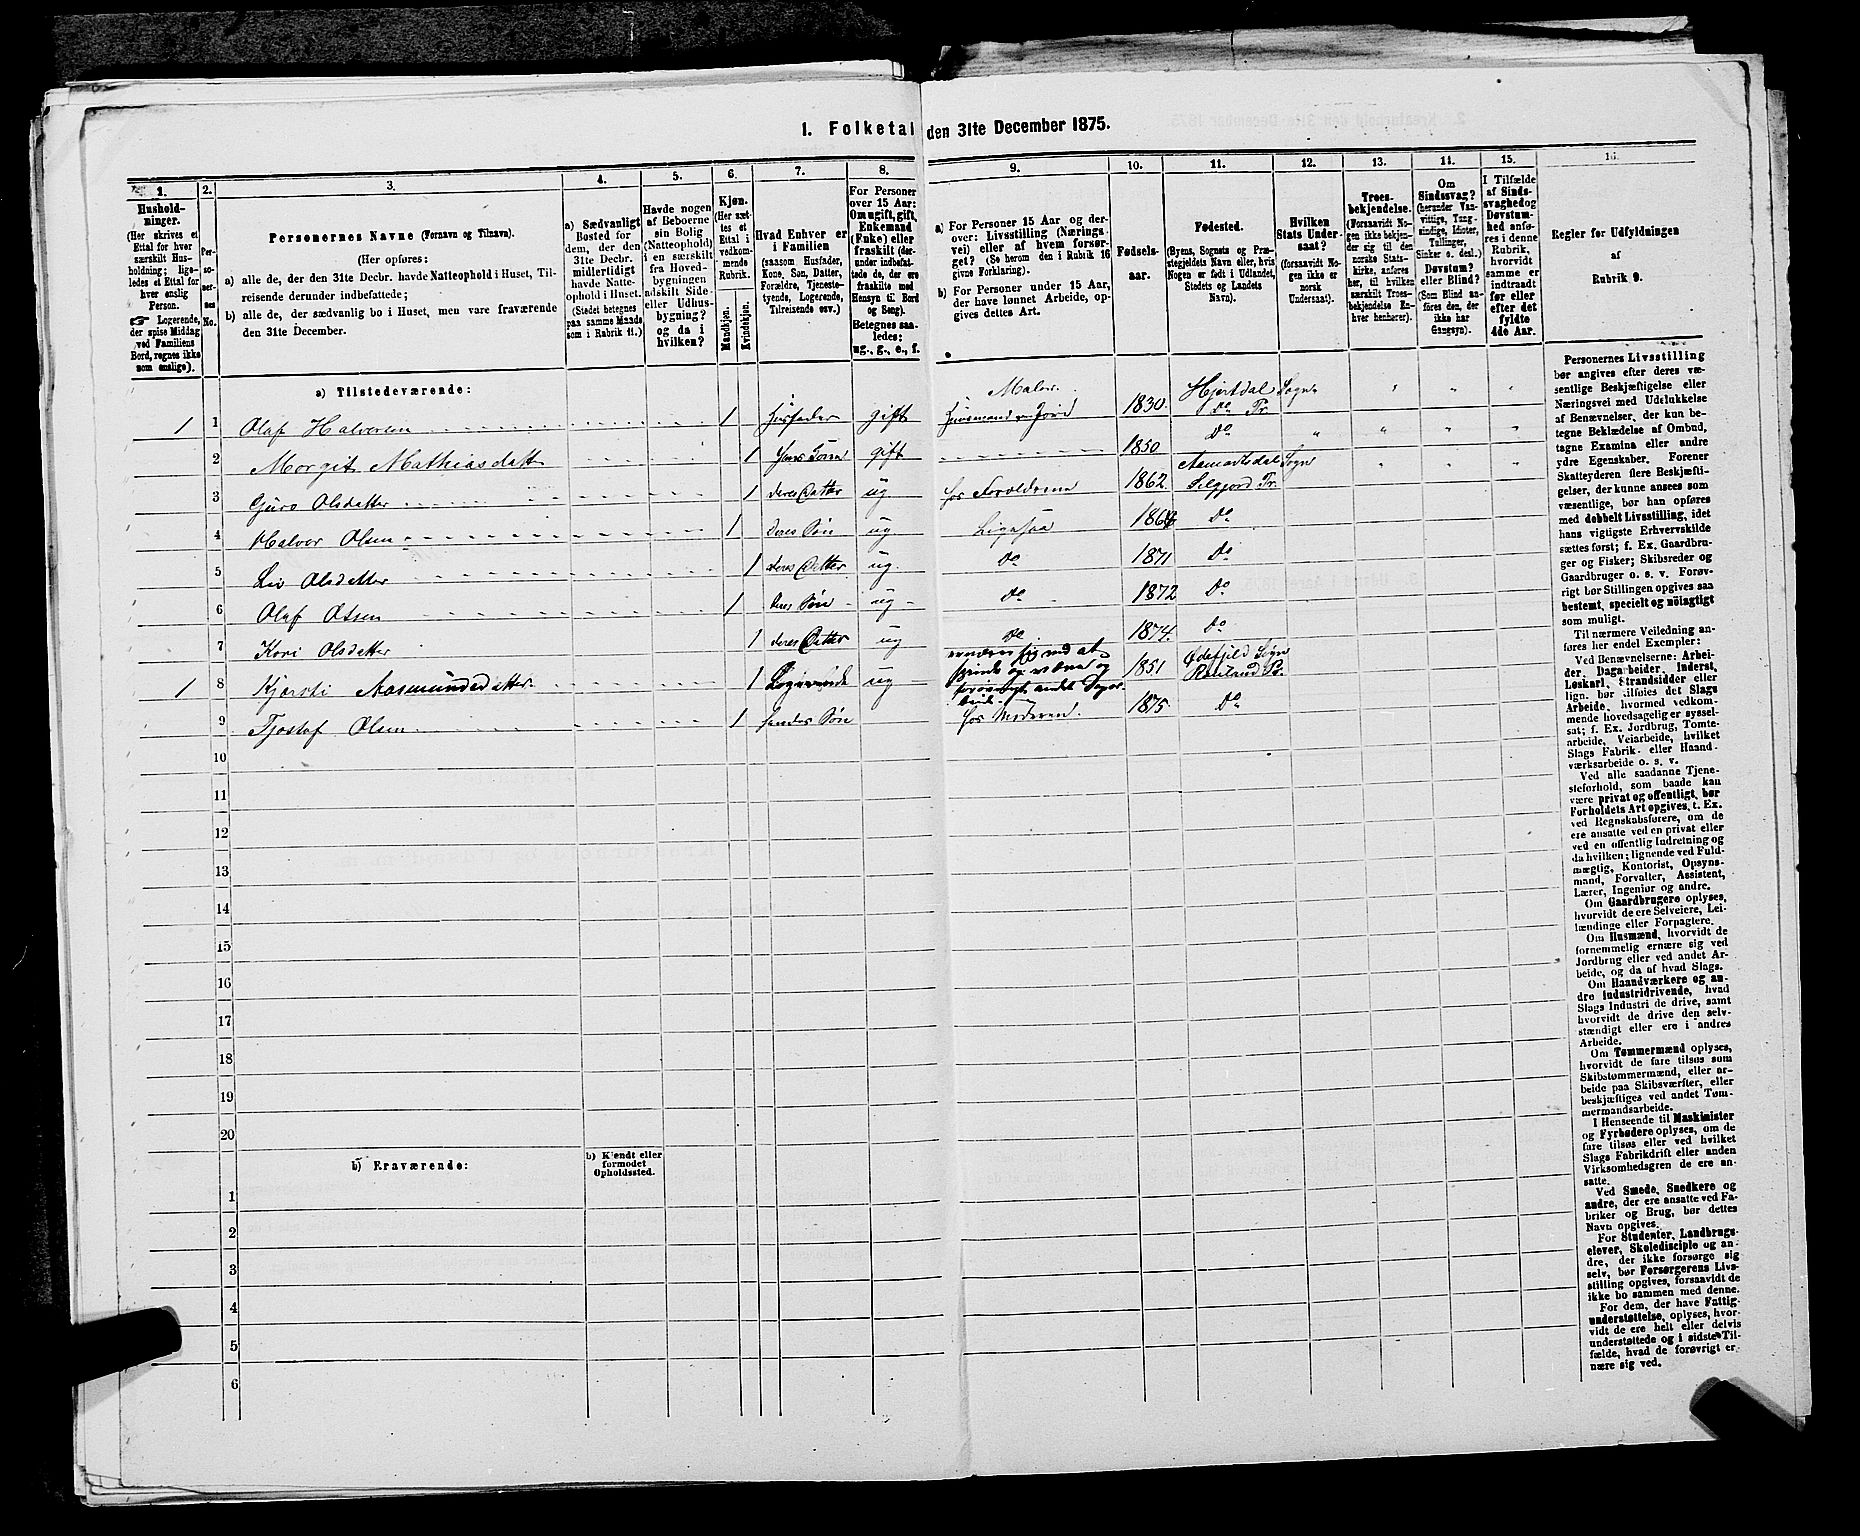 1. Folketal den 31te December 1875.
1.
2.
3.
4.
5.
6.
7.
8.
9.
10.
11.
12.
13.
14.
15.
16.
Hushold-
ninger.
(Her skrives et
Ettal for hver
særskilt Hus-
holdning; lige-
ledes et Ettal for
hver enslig
Person.
☞ Logerende,
der spise Middag
ved Familiens
Bord, regnes ikke
som enslige).
Per-
so-
ner-
nes
No.
Personernes Navne (Fornavn og Tilnavn).
(Her opføres:
a) alle de, der den 31te Decbr. havde Natteophold i Huset, Til-
reisende derunder indbefattede;
b) alle de, der sædvanlig bo i Huset, men vare fraværende
den 31te December.
a) Sædvanligt
Bosted for
dem, der den
31te Decbr.
midlertidigt
havde Natte-
ophold i Huset.
(Stedet betegnes
paa samme Maade
som i Rubrik 11.)
Havde nogen
af Beboerne
sin Bolig
(Natteophold)
i en særskilt
fra Hoved-
bygningen
adskilt Side-
eller Udhus-
bygning?
og da i
hvilken?
Kjøn.
(Her sæt-
tes et
Ettal i
vedkom-
mende
Rubrik.
Mandkjøn.
Kvindekjøn.
Hvad Enhver er
i Familien
(saasom Husfader,
Kone, Søn, Datter,
Forældre, Tjeneste-
tyende, Logerende,
Tilreisende osv.)
For Personer
over 15 Aar:
Om ugift, gift,
Enkemand
(Enke) eller
fraskilt (der-
under indbefat-
tede de, der ere
fraskilte med
Hensyn til Bord
og Seng).
Betegnes saa-
ledes:
ug., g., e., f.
a) For Personer 15 Aar og der-
over: Livsstilling (Nærings-
vei) eller af hvem forsør-
get? (Se herom den i Rubrik 16
givne Forklaring).
b) For Personer under 15 Aar,
der have lønnet Arbeide, op-
gives dettes Art.
Fødsels-
aar.
Fødested.
(Byens, Sognets og Præ-
stegjeldets Navn eller, hvis
Nogen er født i Udlandet,
Stedets og Landets
Navn).
Hvilken
Stats Under-
saat?
(forsaavidt No-
gen ikke er
norsk
Undersaat).
Troes-
bekjendelse.
(Forsaavidt No-
gen ikke bekjen-
der sig til den
norske Stats-
kirke, anføres
her, til hvilken
særskilt Troes-
bekjendelse En-
hver henhører).
Om
Sindssvag?
(herunder Van-
vittige, Tung-
sindige, Idioter,
Tullinger,
Sinker o. desl.)
Døvstum?
eller Blind?
(Som Blind an-
føres den, der
ikke har
Gangsyn).
I Tilfælde
af Sinds-
svaghed og
Døvstum-
hed anfø-
res i denne
Rubrik,
hvorvidt
samme er
indtraadt
før eller
efter det
fyldte
4de Aar.
Regler for Udfyldningen
af
Rubrik 9.
a) Tilstedeværende:
1 1 Olaf Halvorsen 1 Husfader gift Maler. Huusmand m Jord 1830. Hjertdal Sogn Do Pr
2 Morgit Mathiasdatt 1 Hans Kone gift 1850 Do
3 Guro Olsdatter 1 deres Datter ug hos Forældrene 1862 Aamotsdal Sogn Siljord Pr.
4 Halvor Olsen 1 deres Søn ug Ligesaa 1864 Do
5 Liv Olsdatter 1 deres Datter ug. Do 1871 Do
6 Olaf Olsen 1 deres Søn ug Do 1872 Do
7 Kari Olsdatter 1 deres Datter ug Do 1874. Do
1 8 Kjersti Aasmundsdatter. 1 Logerende ug ernærer sig ved at spinde og væve og forøvrigt andet 1851 Ødefjeld Sogn Rauland Pr.
9 Tjostaf Olsen 1 hendes Søn hos Moderen. 1875 Do
10
11
12
13
14
15
16
17
18
19
20
b) Fraværende:
b) Kjendt eller
formodet
Opholdssted.
1
2
3
4
5
6
Personernes Livsstilling
bør angives efter deres væ-
sentlige Beskjæftigelse eller
Næringsvei med Udelukkelse
af Benævnelser, der kun be-
tegne Beklædelse af Ombud,
tagne Examina eller andre
ydre Egenskaber. Forener
Skatteyderen flere Beskjæfti-
gelser, der kunne ansees som
væsentlige, bør han opføres
med dobbelt Livsstilling, idet
hans vigtigste Erhvervskilde
sættes først; f. Ex. Gaardbru-
ger og Fisker; Skibsreder og
Gaardbruger o. s. v. Forøv-
rigt bør Stillingen opgives saa
bestemt, specielt og nöiagtigt
som muligt.
Til nærmere Veiledning an-
føres her endel Exempler:
Ved Benævnelserne: Arbei-
der, Dagarbeider, Inderst,
Løskarl, Strandsidder eller
lign. bør tilføies det Slags
Arbeide, hvormed vedkom-
mende hovedsagelig er syssel-
sat; f. Ex. Jordbrug, Tomte-
arbeide, Veiarbeide, hvilket
Slags Fabrik- eller Haand-
værksarbeide o. s. v.
Ved alle saadanne Tjene-
steforhold, som baade kan
være privat og offentligt, bør
Forholdets Art opgives, t. Ex.
ved Regnskabsførere, om de
ere ansatte ved en privat eller
ved en offentlig Indretning og
da hvilken; lignende ved Fuld-
mægtig, Kontorist, Opsyns-
mand, Forvalter, Assistent,
Lærer, Ingeniør og andre.
Om Gaardbrugere oplyses,
hvorvidt de ere Selveiere, Lei-
lændinge eller Forpagtere.
Om Husmænd, hvorvidt de
fornemmelig ernære sig ved
Jordbrug eller ved andet Ar-
beide, og da af hvad Slags.
Om Haandværkere og an-
dre Industridrivende, hvad
Slags Industri de drive, samt
hvorvidt de drive den selv-
stændigt eller ere i andres
Arbeide.
Om Tømmermænd oplyses,
hvorvidt de fare tilsøs som
Skibstømmermænd, eller ar-
beide paa Skibsværfter, eller
beskjæftiges ved andet Tøm-
mermandsarbeide.
I Henseende til Maskinister
og Fyrbødere oplyses, om de
fare tilsøs eller ved hvilket
Slags Fabrikdrift eller anden
Virksomhedsgren de ere an-
satte.
Ved Smede, Snedkere og
andre, der ere ansatte ved Fa-
briker og Brug, bør dettes
Navn opgives.
For Studenter, Landbrugs-
elever, Skoledisciple og an-
dre, der ikke forsørge sig
selv, bør Forsørgerens Livs-
stilling opgives, forsaavidt de
ikke bo sammen med denne.
For dem, der have Fattig-
understøttelse, oplyses, hvor-
vidt de ere helt eller delvis
understøttede og i sidste Til-
fælde, hvad de forøvrigt er-
nære sig ved.